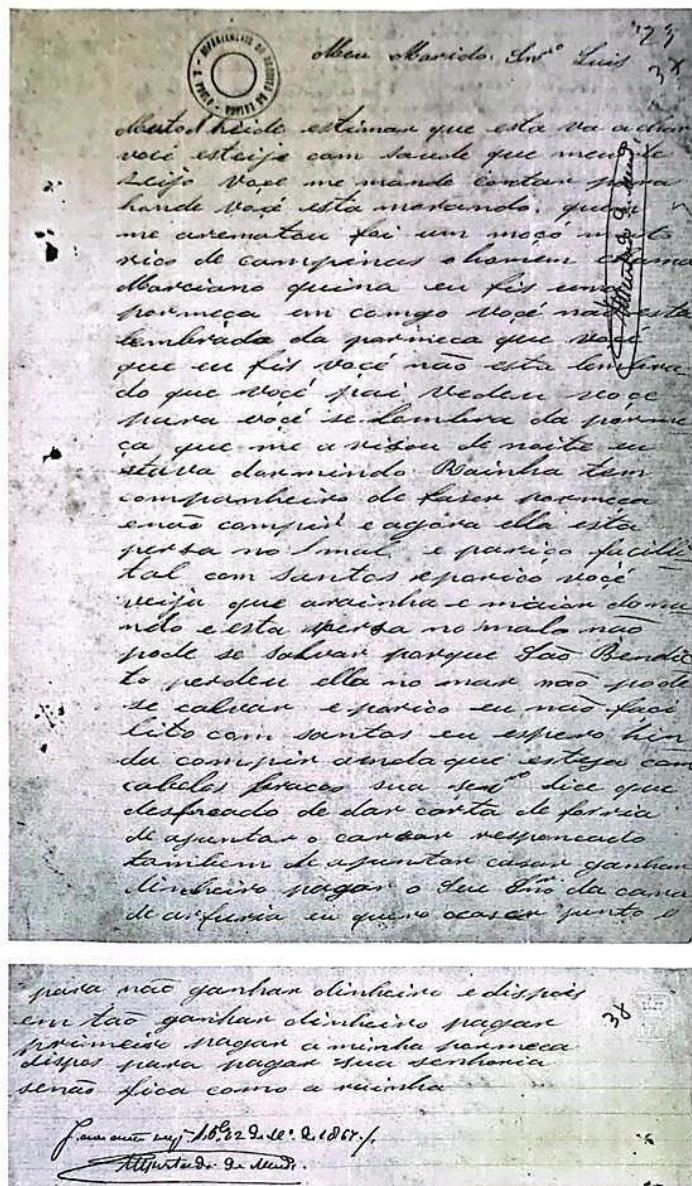 Meu Marido. Snrº Luis
Muto heide estimar que esta va achar
você esteije com saude que meu de
Zeijo voçe me mande contar para
honde voçê está morando. quem
me arematou foi um moço muito
rico de campinas o homem chama
Marciano quina eu fis uma
pormeça em comgo voçê não esta
lembrada da pormeca que você
que eu fis você não esta lembra
do que você pai vedeu voçe
para você se lembra da pórme
ça que me a visou de noite eu
stava dormindo Rainha tem
companheiro de faser pormeca
enão compir e agóra ella está
persa no mal e pariço facilli
tal com santos epariço voçê
veija que arainha e maior do mu
ndo e esta persa no malo não
pode se salvar porque São Bendic
to perdeu ella no mar não pode
se calvar epariço eu não faci
lito com santos eu espero hin
da compir ainda que esteja com
cabelos bracos sua senrº dice que
desfrocado de dar carta de forria
de ajuntar o casar responcado
tambem de ajuntar casar ganhar
dinheiro pagar o seu Snr. da carta
de arfuria eu quero ocasar junto e
para não ganhar dinheiro edispois
em taõ ganhar dinheiro pagar
primeiro pagar aminha pormeca
dispos para pagar sua senhoria
senão fica como a rainha
38
22 de 1867